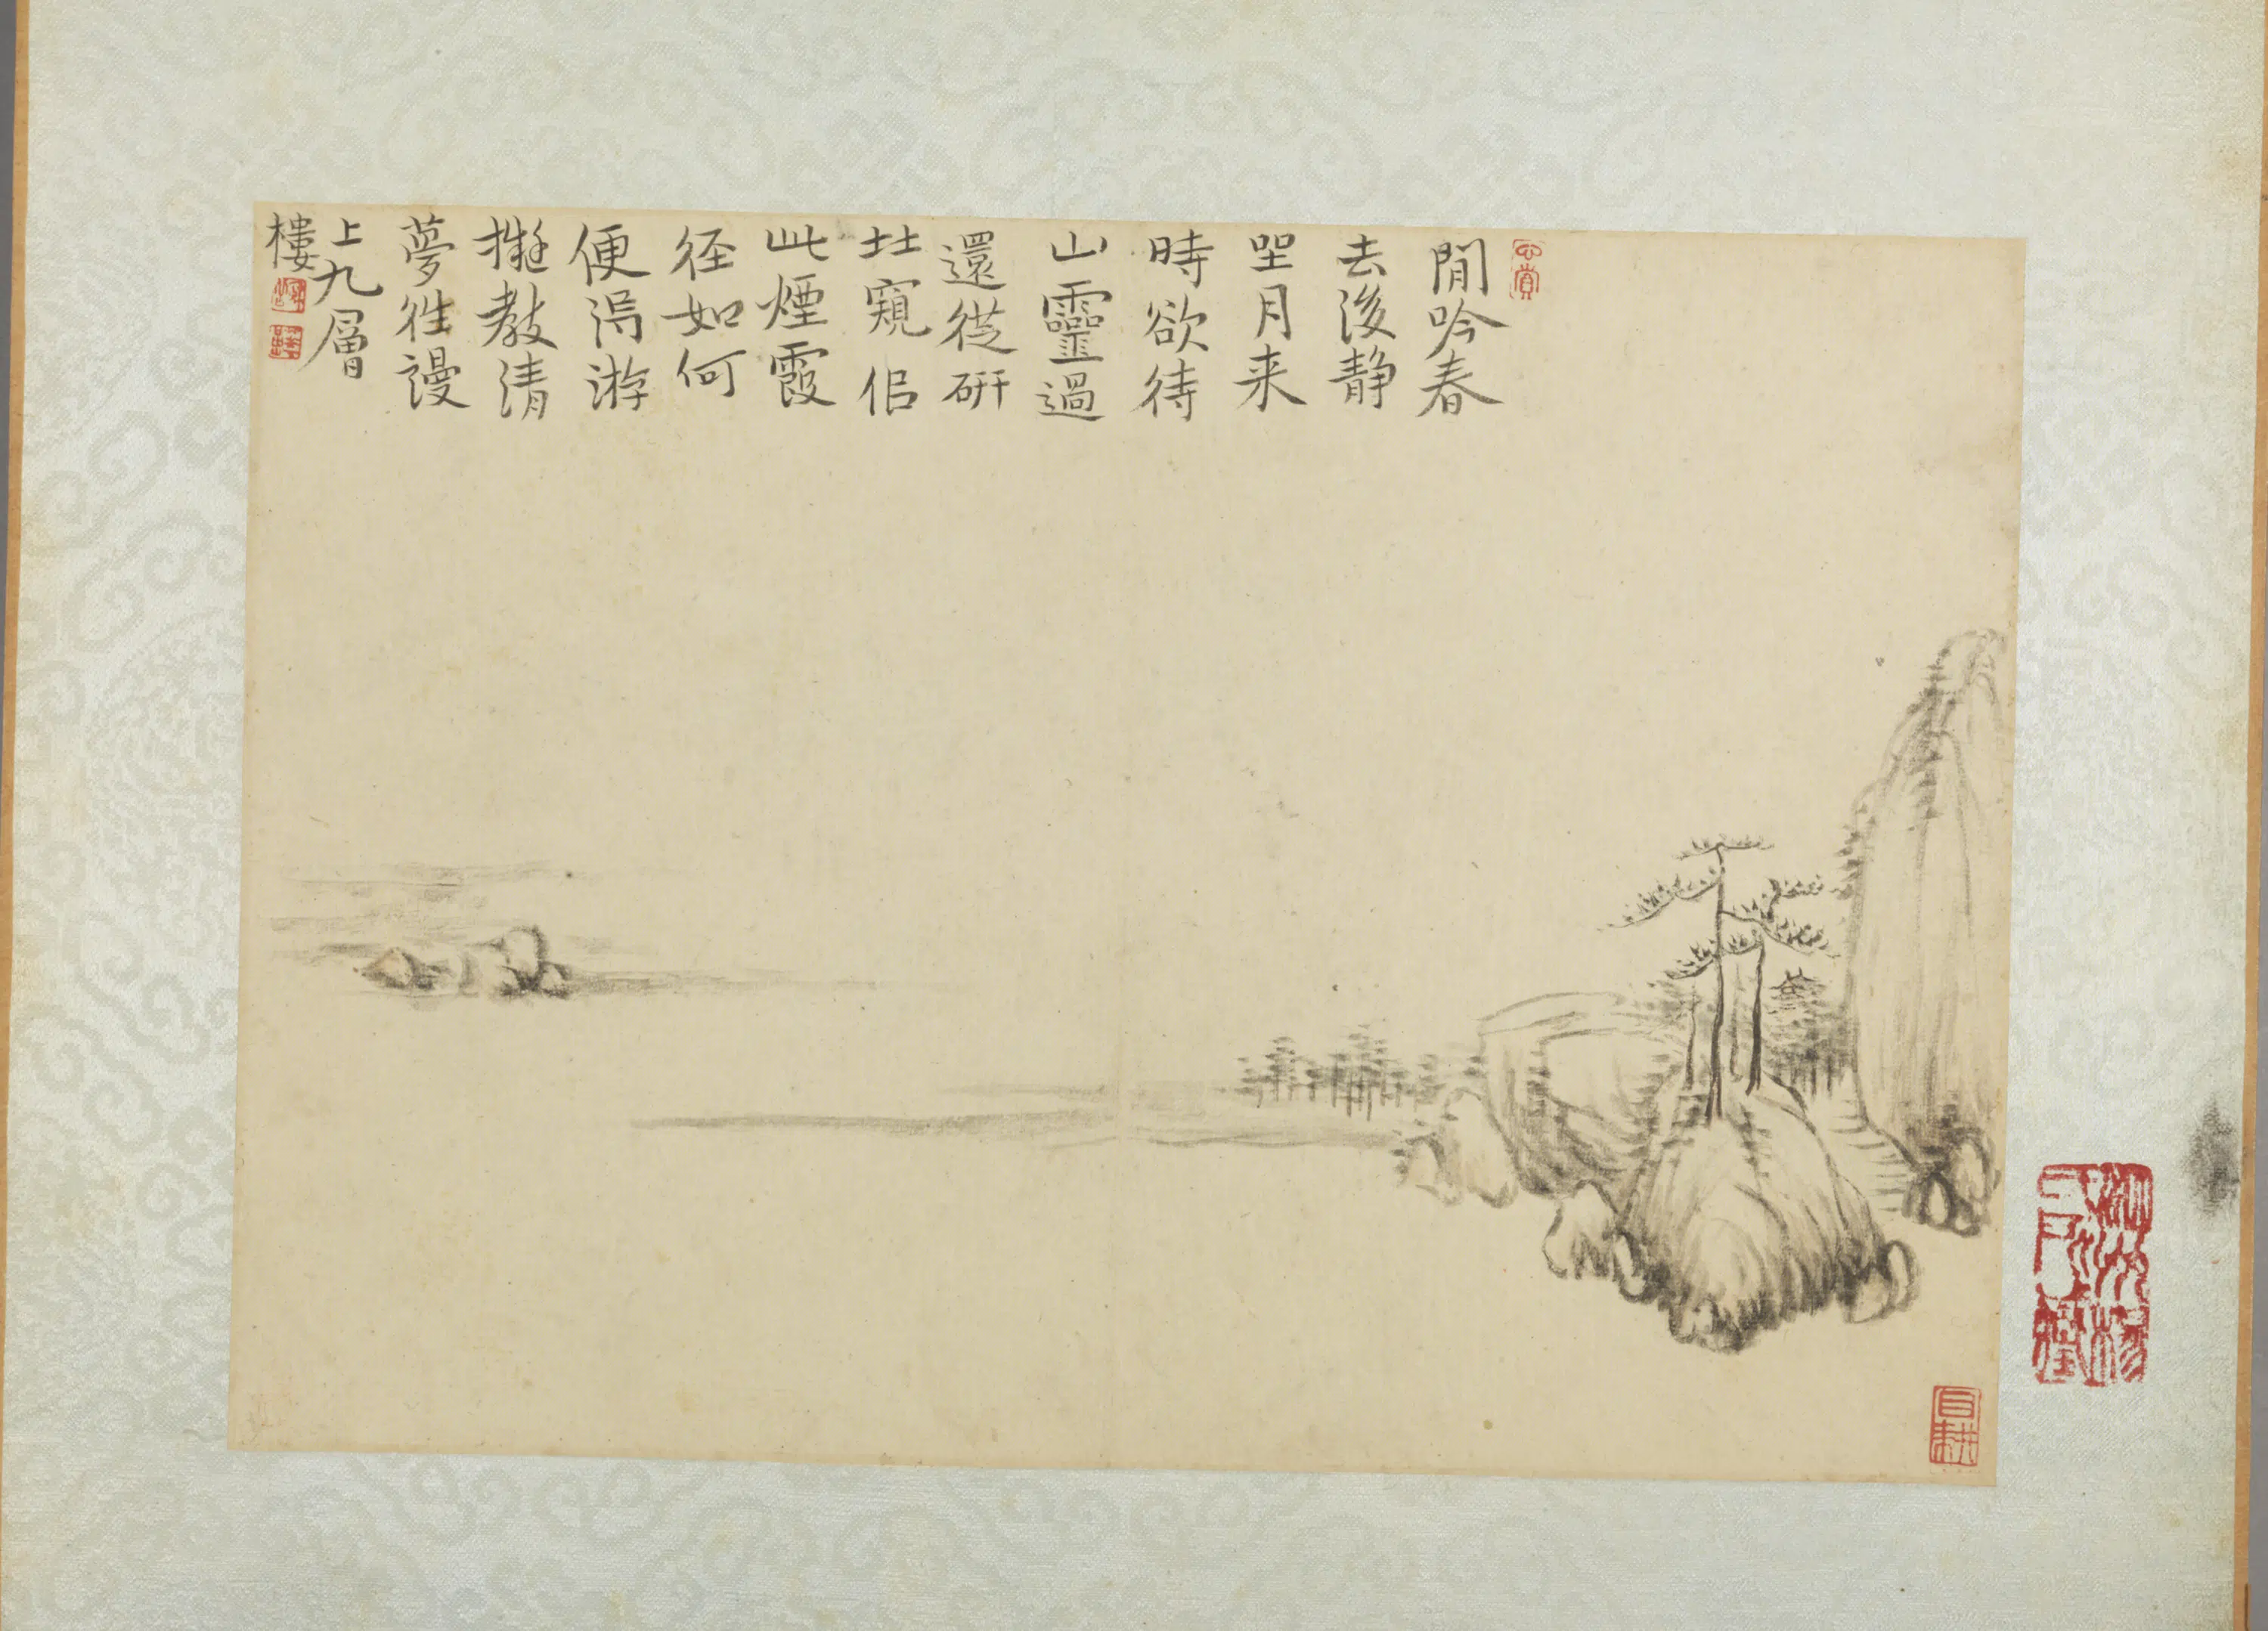 閒吟春
去後静
坐月来
時欲待
山靈過
還從研
北窺侣
此煙霞
径如何
便淂游
擬教清
夢往謾
上九層
樓
自耕